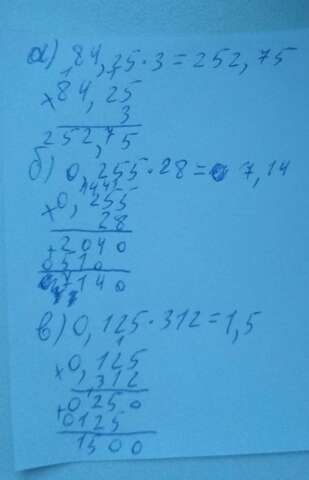 а) 84,25·3=252,75
×84,25
3
252,75
б) 0,255·28= 7,14
×0,255
28
+2040
0510
7140
в) 0,125·312=1,5
×0,125
312
+0250
0125
1500